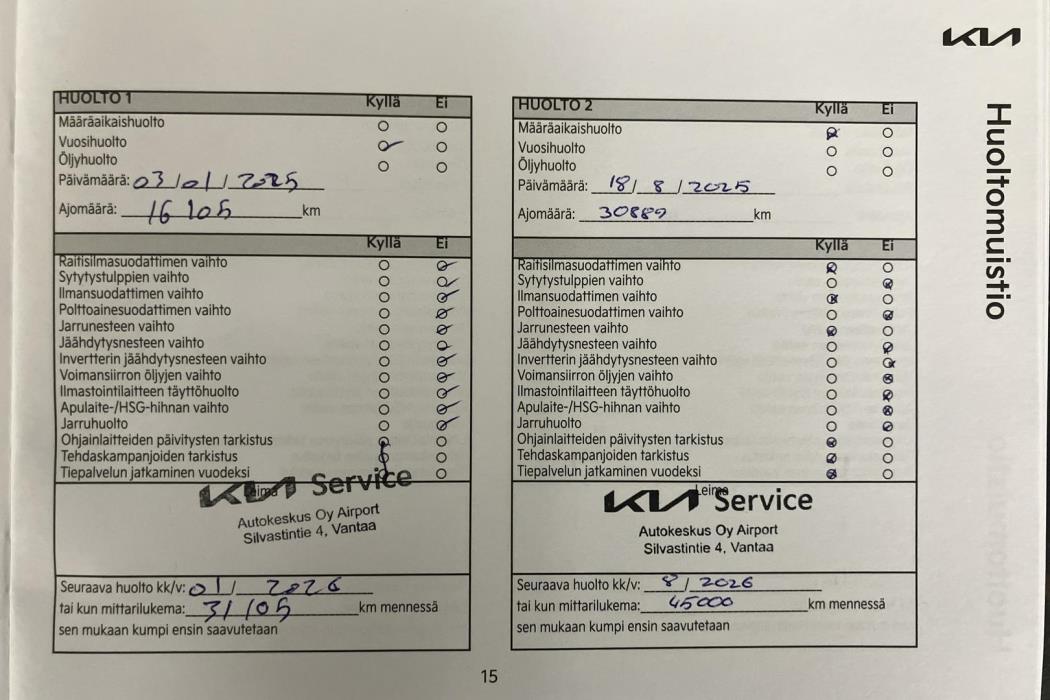 KIA
Huoltomuistio
HUOLTO 1 Kyllä Ei
Määräaikaishuolto
Vuosihuolto
Öljyhuolto
Päivämäärä: 03/01/2025
Ajomäärä: 16105 km
Kyllä Ei
Raitisilmasuodattimen vaihto
Sytytystulppien vaihto
Ilmansuodattimen vaihto
Polttoainesuodattimen vaihto
Jarrunesteen vaihto
Jäähdytysnesteen vaihto
Invertterin jäähdytysnesteen vaihto
Voimansiirron öljyjen vaihto
Ilmastointilaitteen täyttöhuolto
Apulaite-/HSG-hihnan vaihto
Jarruhuolto
Ohjainlaitteiden päivitysten tarkistus
Tehdaskampanjoiden tarkistus
Tiepalvelun jatkaminen vuodeksi
Leima
KIA Service
Autokeskus Oy Airport
Silvastintie 4, Vantaa
Seuraava huolto kk/v: 01/ 2026
tai kun mittarilukema: 31105 km mennessä
sen mukaan kumpi ensin saavutetaan
HUOLTO 2 Kyllä Ei
Määräaikaishuolto
Vuosihuolto
Öljyhuolto
Päivämäärä: 18/ 8 / 2025
Ajomäärä: 30889 km
Kyllä Ei
Raitisilmasuodattimen vaihto
Sytytystulppien vaihto
Ilmansuodattimen vaihto
Polttoainesuodattimen vaihto
Jarrunesteen vaihto
Jäähdytysnesteen vaihto
Invertterin jäähdytysnesteen vaihto
Voimansiirron öljyjen vaihto
Ilmastointilaitteen täyttöhuolto
Apulaite-/HSG-hihnan vaihto
Jarruhuolto
Ohjainlaitteiden päivitysten tarkistus
Tehdaskampanjoiden tarkistus
Tiepalvelun jatkaminen vuodeksi
Leima
KIA Service
Autokeskus Oy Airport
Silvastintie 4, Vantaa
Seuraava huolto kk/v: 8 / 2026
tai kun mittarilukema: 45000 km mennessä
sen mukaan kumpi ensin saavutetaan
15